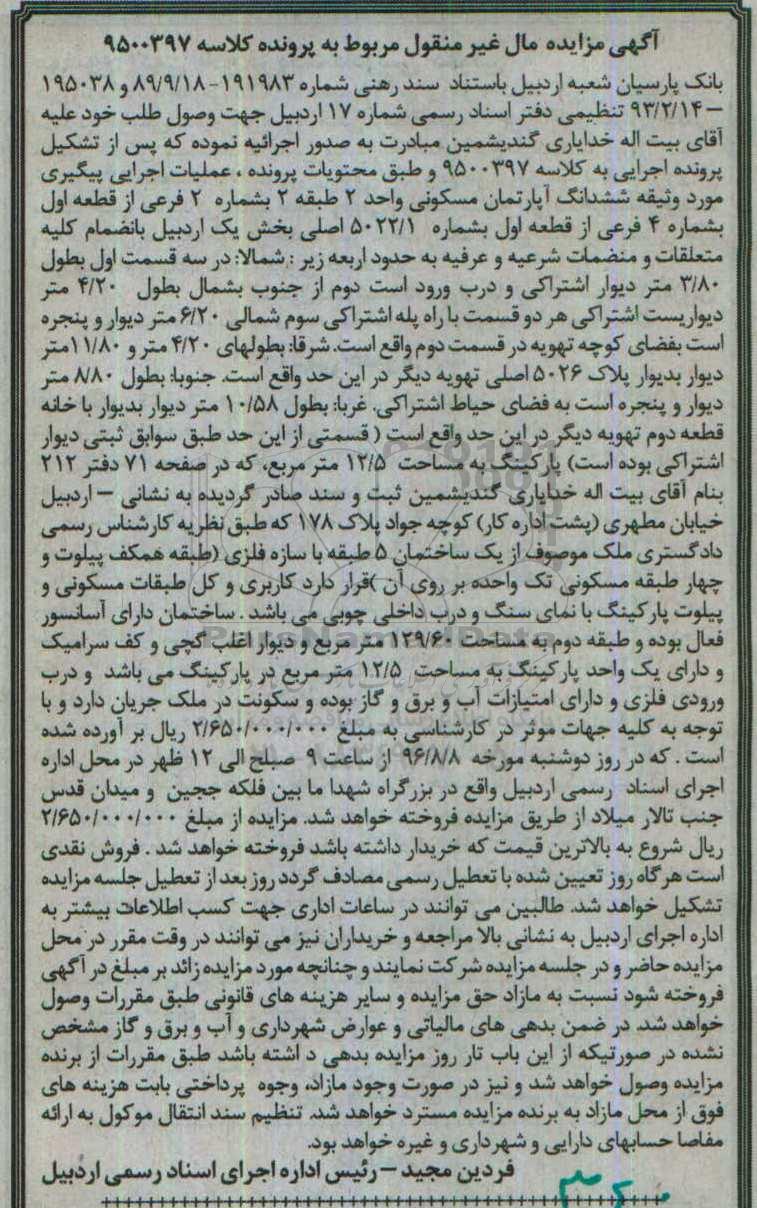 آگهی مزایده مال غیر منقول مربوط به پرونده کلاسه ۹۵۰۰۳۹۷
بانک پارسیان شعبه اردبیل باستناد سند رهنی شماره ۱۹۱۹۸۳-۸۹/۹/۱۸ و ۱۹۵۰۳۸
– ۹۳/۲/۱۴ تنظیمی دفتر اسناد رسمی شماره ۱۷ اردبیل جهت وصول طلب خود علیه
آقای بیت اله خدایاری گندیشمین مبادرت به صدور اجرائیه نموده که پس از تشکیل
پرونده اجرایی به کلاسه ۹۵۰۰۳۹۷ و طبق محتویات پرونده ، عملیات اجرایی پیگیری
مورد وثیقه ششدانگ آپارتمان مسکونی واحد ۲ طبقه ۲ بشماره ۲ فرعی از قطعه اول
بشماره ۴ فرعی از قطعه اول بشماره ۵۰۲۲/۱ اصلی بخش یک اردبیل بانضمام کلیه
متعلقات و منضمات شرعیه و عرفیه به حدود اربعه زیر : شمالا: در سه قسمت اول بطول
۳/۸۰ متر دیوار اشتراکی و درب ورود است دوم از جنوب بشمال بطول ۴/۲۰ متر
دیواریست اشتراکی هر دو قسمت با راه پله اشتراکی سوم شمالی ۶/۲۰ متر دیوار و پنجره
است بفضای کوچه تهویه در قسمت دوم واقع است. شرقا: بطولهای ۴/۲۰ متر و ۱۱/۸۰متر
دیوار بدیوار پلاک ۵۰۲۶ اصلی تهویه دیگر در این حد واقع است. جنوبا: بطول ۸/۸۰ متر
دیوار و پنجره است به فضای حیاط اشتراکی. غربا: بطول ۱۰/۵۸ متر دیوار بدیوار با خانه
قطعه دوم تهویه دیگر در این حد واقع است ( قسمتی از این حد طبق سوابق ثبتی دیوار
اشتراکی بوده است) پارکینگ به مساحت ۱۲/۵ متر مربع، که در صفحه ۷۱ دفتر ۲۱۲
بنام آقای بیت اله خدایاری گندیشمین ثبت و سند صادر گردیده به نشانی – اردبیل
خیابان مطهری (پشت اداره کار) کوچه جواد پلاک ۱۷۸ که طبق نظریه کارشناس رسمی
دادگستری ملک موصوف از یک ساختمان ۵ طبقه با سازه فلزی (طبقه همکف پیلوت و
چهار طبقه مسکونی تک واحده بر روی آن )قرار دارد کاربری و کل طبقات مسکونی و
پیلوت پارکینگ با نمای سنگ و درب داخلی چوبی می باشد . ساختمان دارای آسانسور
فعال بوده و طبقه دوم به مساحت ۱۲۹/۶۰ متر مربع و دیوار اغلب گچی و کف سرامیک
و دارای یک واحد پارکینگ به مساحت ۱۲/۵ متر مربع در پارکینگ می باشد و درب
ورودی فلزی و دارای امتیازات آب و برق و گاز بوده و سکونت در ملک جریان دارد و با
توجه به کلیه جهات موثر در کارشناسی به مبلغ ۲/۶۵۰/۰۰۰/۰۰۰ ریال بر آورده شده
است . که در روز دوشنبه مورخه ۹۶/۸/۸ از ساعت ۹ صبح الی ۱۲ ظهر در محل اداره
اجرای اسناد رسمی اردبیل واقع در بزرگراه شهدا ما بین فلکه ججین و میدان قدس
جنب تالار میلاد از طریق مزایده فروخته خواهد شد. مزایده از مبلغ ۲/۶۵۰/۰۰۰/۰۰۰
ریال شروع به بالاترین قیمت که خریدار داشته باشد فروخته خواهد شد . فروش نقدی
است هرگاه روز تعیین شده با تعطیل رسمی مصادف گردد روز بعد از تعطیل جلسه مزایده
تشکیل خواهد شد. طالبین می توانند در ساعات اداری جهت کسب اطلاعات بیشتر به
اداره اجرای اردبیل به نشانی بالا مراجعه و خریداران نیز می توانند در وقت مقرر در محل
مزایده حاضر و در جلسه مزایده شرکت نمایند و چنانچه مورد مزایده زائد بر مبلغ در آگهی
فروخته شود نسبت به مازاد حق مزایده و سایر هزینه های قانونی طبق مقررات وصول
خواهد شد. در ضمن بدهی های مالیاتی و عوارض شهرداری و آب و برق و گاز مشخص
نشده در صورتیکه از این باب تار روز مزایده بدهی د اشته باشد طبق مقررات از برنده
مزایده وصول خواهد شد و نیز در صورت وجود مازاد، وجوه پرداختی بابت هزینه های
فوق از محل مازاد به برنده مزایده مسترد خواهد شد. تنظیم سند انتقال موکول به ارائه
مفاصا حسابهای دارایی و شهرداری و غیره خواهد بود.
فردین مجید – رئیس اداره اجرای اسناد رسمی اردبیل